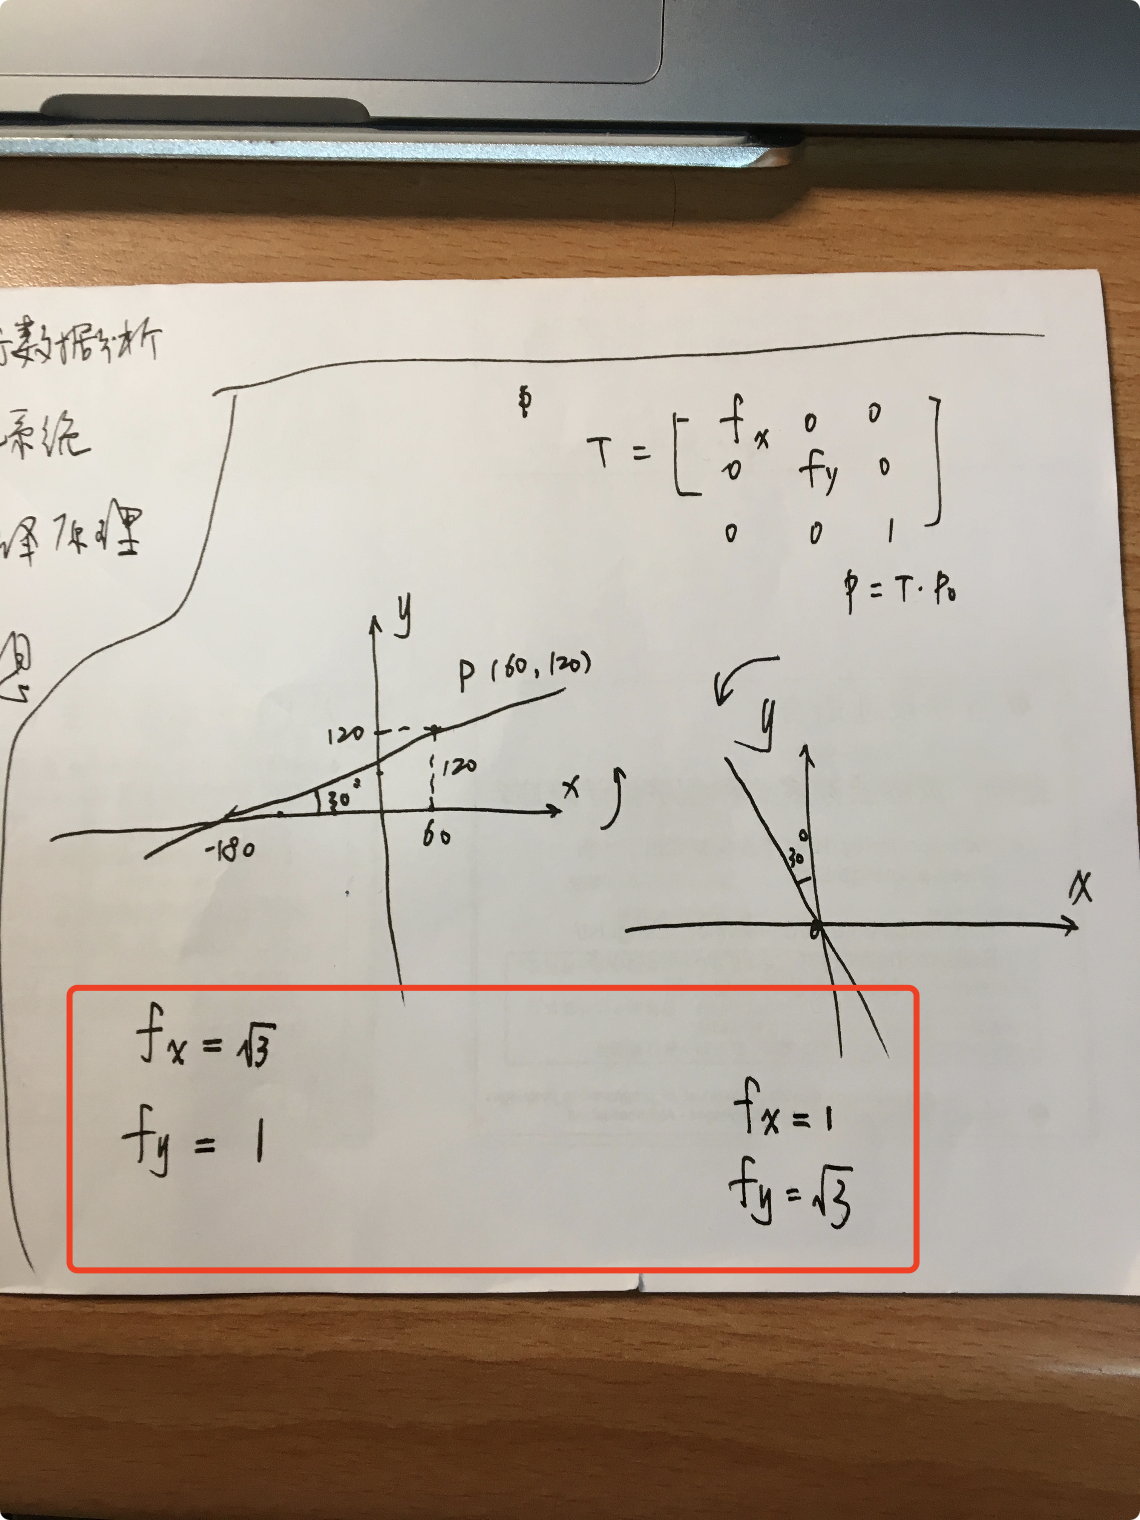 数据分析
系统
译原理
T = [ f x 0 0
0 fy 0
0 0 1 ]
p = T · P₀
y
P (60, 120)
120
120
30°
x
-180
60
y
30°
x
0
fx = √3
fy = 1
fx = 1
fy = √3